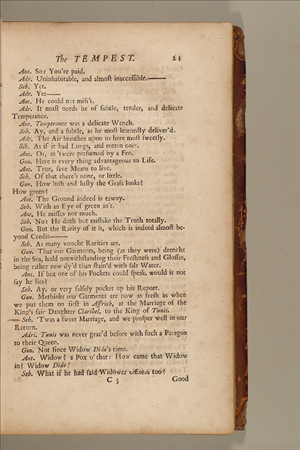 The TEMPEST. 21
Ant. So: You're paid.
Adr. Uninhabitable, and almost inaccessible.——
Seb. Yet.
Adr. Yet——
Ant. He could not miss't.
Adr. It must needs be of subtle, tender, and delicate
Temperance.
Ant. Temperance was a delicate Wench.
Seb. Ay, and a subtle, as he most learnedly deliver'd.
Adr. The Air breathes upon us here most sweetly.
Seb. As if it had Lungs, and rotten ones.
Ant. Or, as 'twere perfumed by a Fen.
Gon. Here is every thing advantageous to Life.
Ant. True, save Means to live.
Seb. Of that there's none, or little.
Gon. How lush and lusty the Grass looks?
How green?
Ant. The Ground indeed is tawny.
Seb. With an Eye of green in't.
Ant. He misses not much.
Seb. No: He doth but mistake the Truth totally.
Gon. But the Rarity of it is, which is indeed almost be-
yond Credit——
Seb. As many voucht Rarities are.
Gon. That our Garments, being (as they were) drencht
in the Sea, hold notwithstanding their Freshness and Glosses,
being rather new dy'd than stain'd with salt Water.
Ant. If but one of his Pockets could speak, would it not
say he lies?
Seb. Ay, or very falsely pocket up his Report.
Gon. Methinks our Garments are now as fresh as when
we put them on first in Affrick, at the Marriage of the
King's fair Daughter Claribel, to the King of Tunis.
Seb. 'Twas a sweet Marriage, and we prosper well in our
Return.
Adri. Tunis was never grac'd before with such a Paragon
to their Queen.
Gon. Not since Widow Dido's time.
Ant. Widow? a Pox o'that: How came that Widow
in? Widow Dido!
Seb. What if he had said Widower Æneas too?
C 3 Good